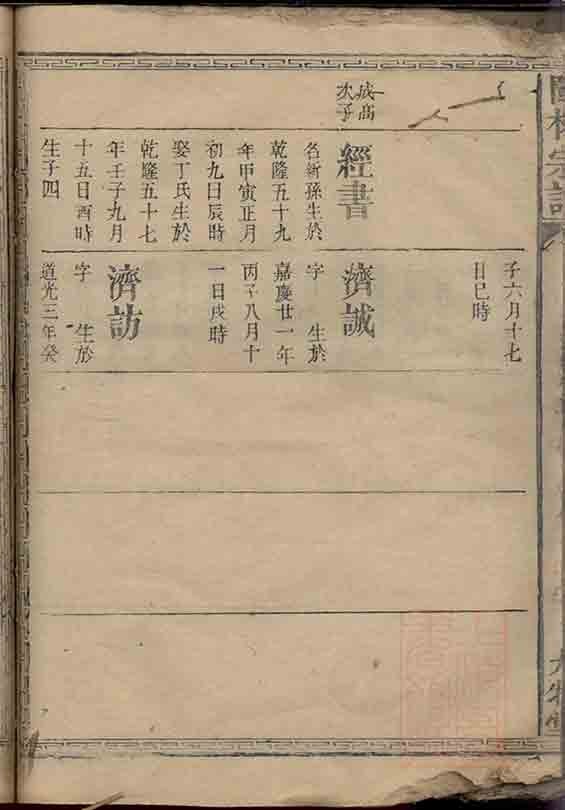 成高
次子
經書
名新孫生於
乾隆五十九
年甲寅正月
初九日辰時
娶丁氏生於
乾隆五十七
年壬子九月
十五日酉時
生子四
子六月十七
日巳時
濟誠
字 生於
嘉慶廿一年
丙子八月十
一日戌時
濟訪
字 生於
道光三年癸
宗譜